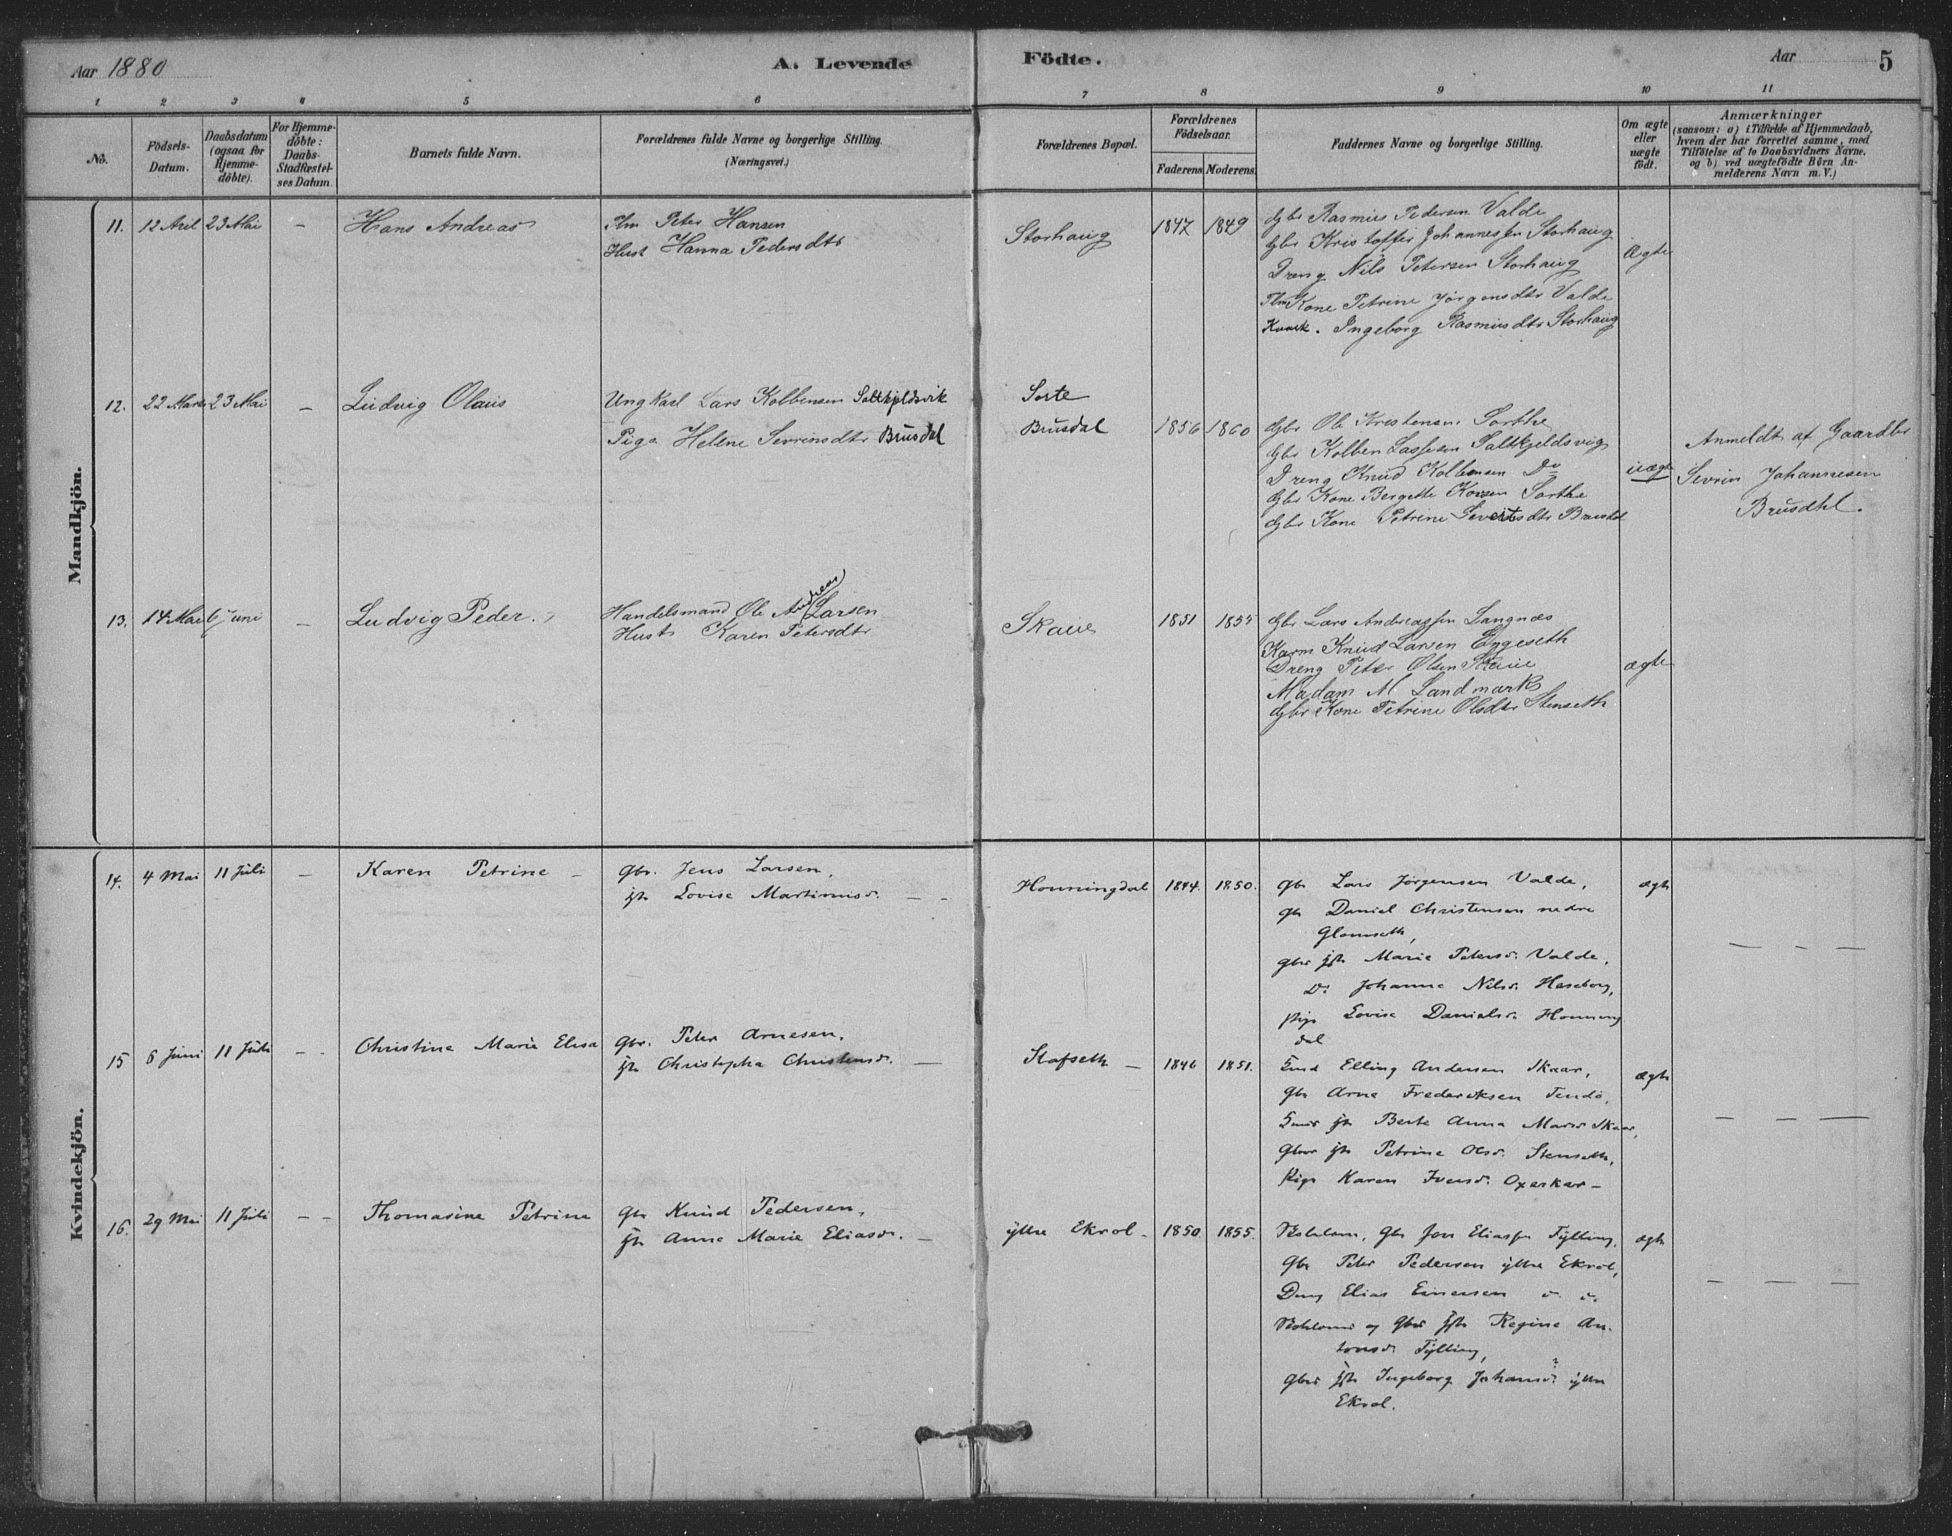 Aar 1880 A. Levende Födte. Aar 5
1 2 3 4 5 6 7 8 9 10 11
No. Födsels-Datum. Daabsdatum (ogsaa for Hjemme-döbte). For Hjemme-döbte: Daabs-Stadfæstel-ses Datum. Barnets fulde Navn. Forældrenes fulde Navne og borgerlige Stilling. (Næringsvei.) Forældrenes Bopæl. Forældrenes Födselsaar. Faderens Moderens. Faddernes Navne og borgerlige Stilling. Om ægte eller uægte födt. Anmærkninger (saasom: a) i Tilfælde af Hjemmedaab, hvem der har forrettet samme, med Tilföielse af to Daabsvidners Navne, og b) ved uægtefödte Börn An-melderens Navn m. V.)
Mandkjön.
11. 12 Aril 23 Mai – Hans Andreas
Peter Hansen
Hust Hanna Pedersdtr
Storhaug 1847 1849
Gbr Rasmus Pedersen Valde
Gbr Kristoffer Johannessen Storhaug
Dreng Nils Petersen Storhaug
Kone Petrine Jörgensdtr Valde
Ingeborg Rasmusdtr Storhaug
Ægte
12. 22 Marts 23 Mai – Ludvig Olaus
Ungkarl Lars Kolbensen Saltkjeldsvik
Pige Helene Sevrinsdtr Brusdal
Sorte
Brusdal 1856 1860
Gbr Ole Kristensen Sorthe
Gbr Kolben Lassesen Saltkjeldsvig
Dreng Knud Kolbensen Do
Gbr Kone Bergette Sorthe
Gbr Kone Petrine Sivertsdtr Brusdal
uægte
Anmeldt af Gaardbr
Sevrin Johannesen
Brusdal.
13. 14 Mai 6 Juni – Ludvig Peder.
Handelsmand Ole Andreas Larsen
Hust Karen Petersdtr
Skaue 1851 1855
Gbr Lars Andreassen Langnæs
Knud Larsen Eggeseth
Dreng Peter Olsen Skaue
Madam M Landmark
Gbr Kone Petrine Olsdtr Stenseth
ægte
Kvindekjön.
14. 4 Mai 11 Juli – Karen Petrine –
Gbr. Jens Larsen,
Lovise Martinusd. – –
Honningdal 1844. 1850.
Gbr Lars Jörgensen Valde,
Gbr Daniel Christensen nedre
Glomseth,
Marie Petersd. Valde,
Do Johanne Nilsd. Haseborg,
Pige Lovise Danielsd. Honning
dal
ægte
– – –
15 6 Juni 11 Juli – – Christine Marie Elisa
Gbr. Peter Arnesen,
Christopha Christensd. –
Stafseth – 1846 1851.
Elling Andersen Skaar,
Gbr Arne Frederiksen Tendö,
Berte Anna Skaar,
Petrine Olsd. Stenseth,
Pige Karen Iversd. Oxeskar –
ægte
– – –
16. 29 Mai 11 Juli – – Thomasine Petrine
Gbr Knud Pedersen,
Anne Marie Eliasd. –
ytre Ekrol – 1850. 1855.
Gbr Jon Eliassen Fylling,
Gbr Peter Pedersen ytre Ekrol,
Dreng Elias Einersen d. d.
og Gbr Regine An-
tonsd. Fylling,
Ingeborg Johansd. ytre
Ekrol.
ægte
– – –